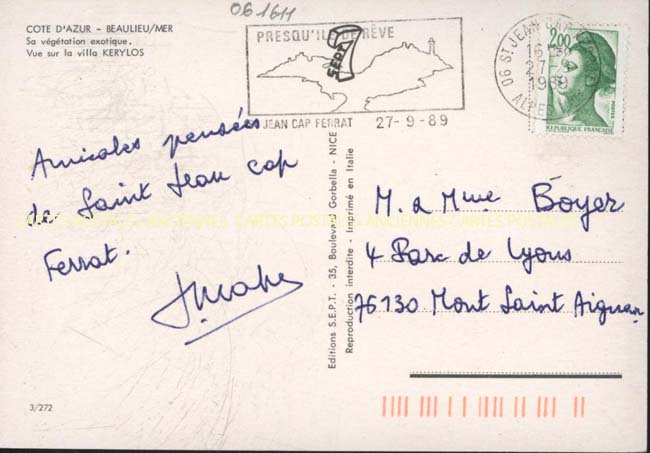 061611
COTE D'AZUR - BEAULIEU/MER
Sa végétation exotique.
Vue sur la villa KERYLOS
PRESQU'ILE DE RÊVE
SEPT
ST JEAN CAP FERRAT 27-9-89
06 ST JEAN CAP FERRAT
16 H
27-9
1989
2,00
POSTES
REPUBLIQUE FRANÇAISE
Amicales pensées
de Saint Jean Cap
Ferrat.
CARTES POSTALES ANCIENNES
Editions S.E.P.T. - 35, Boulevard Gorbella - NICE
Reproduction interdite - Imprimé en Italie
M. & Mme Boyer
4 Parc de Lyons
76130 Mont Saint Aignan
3/272